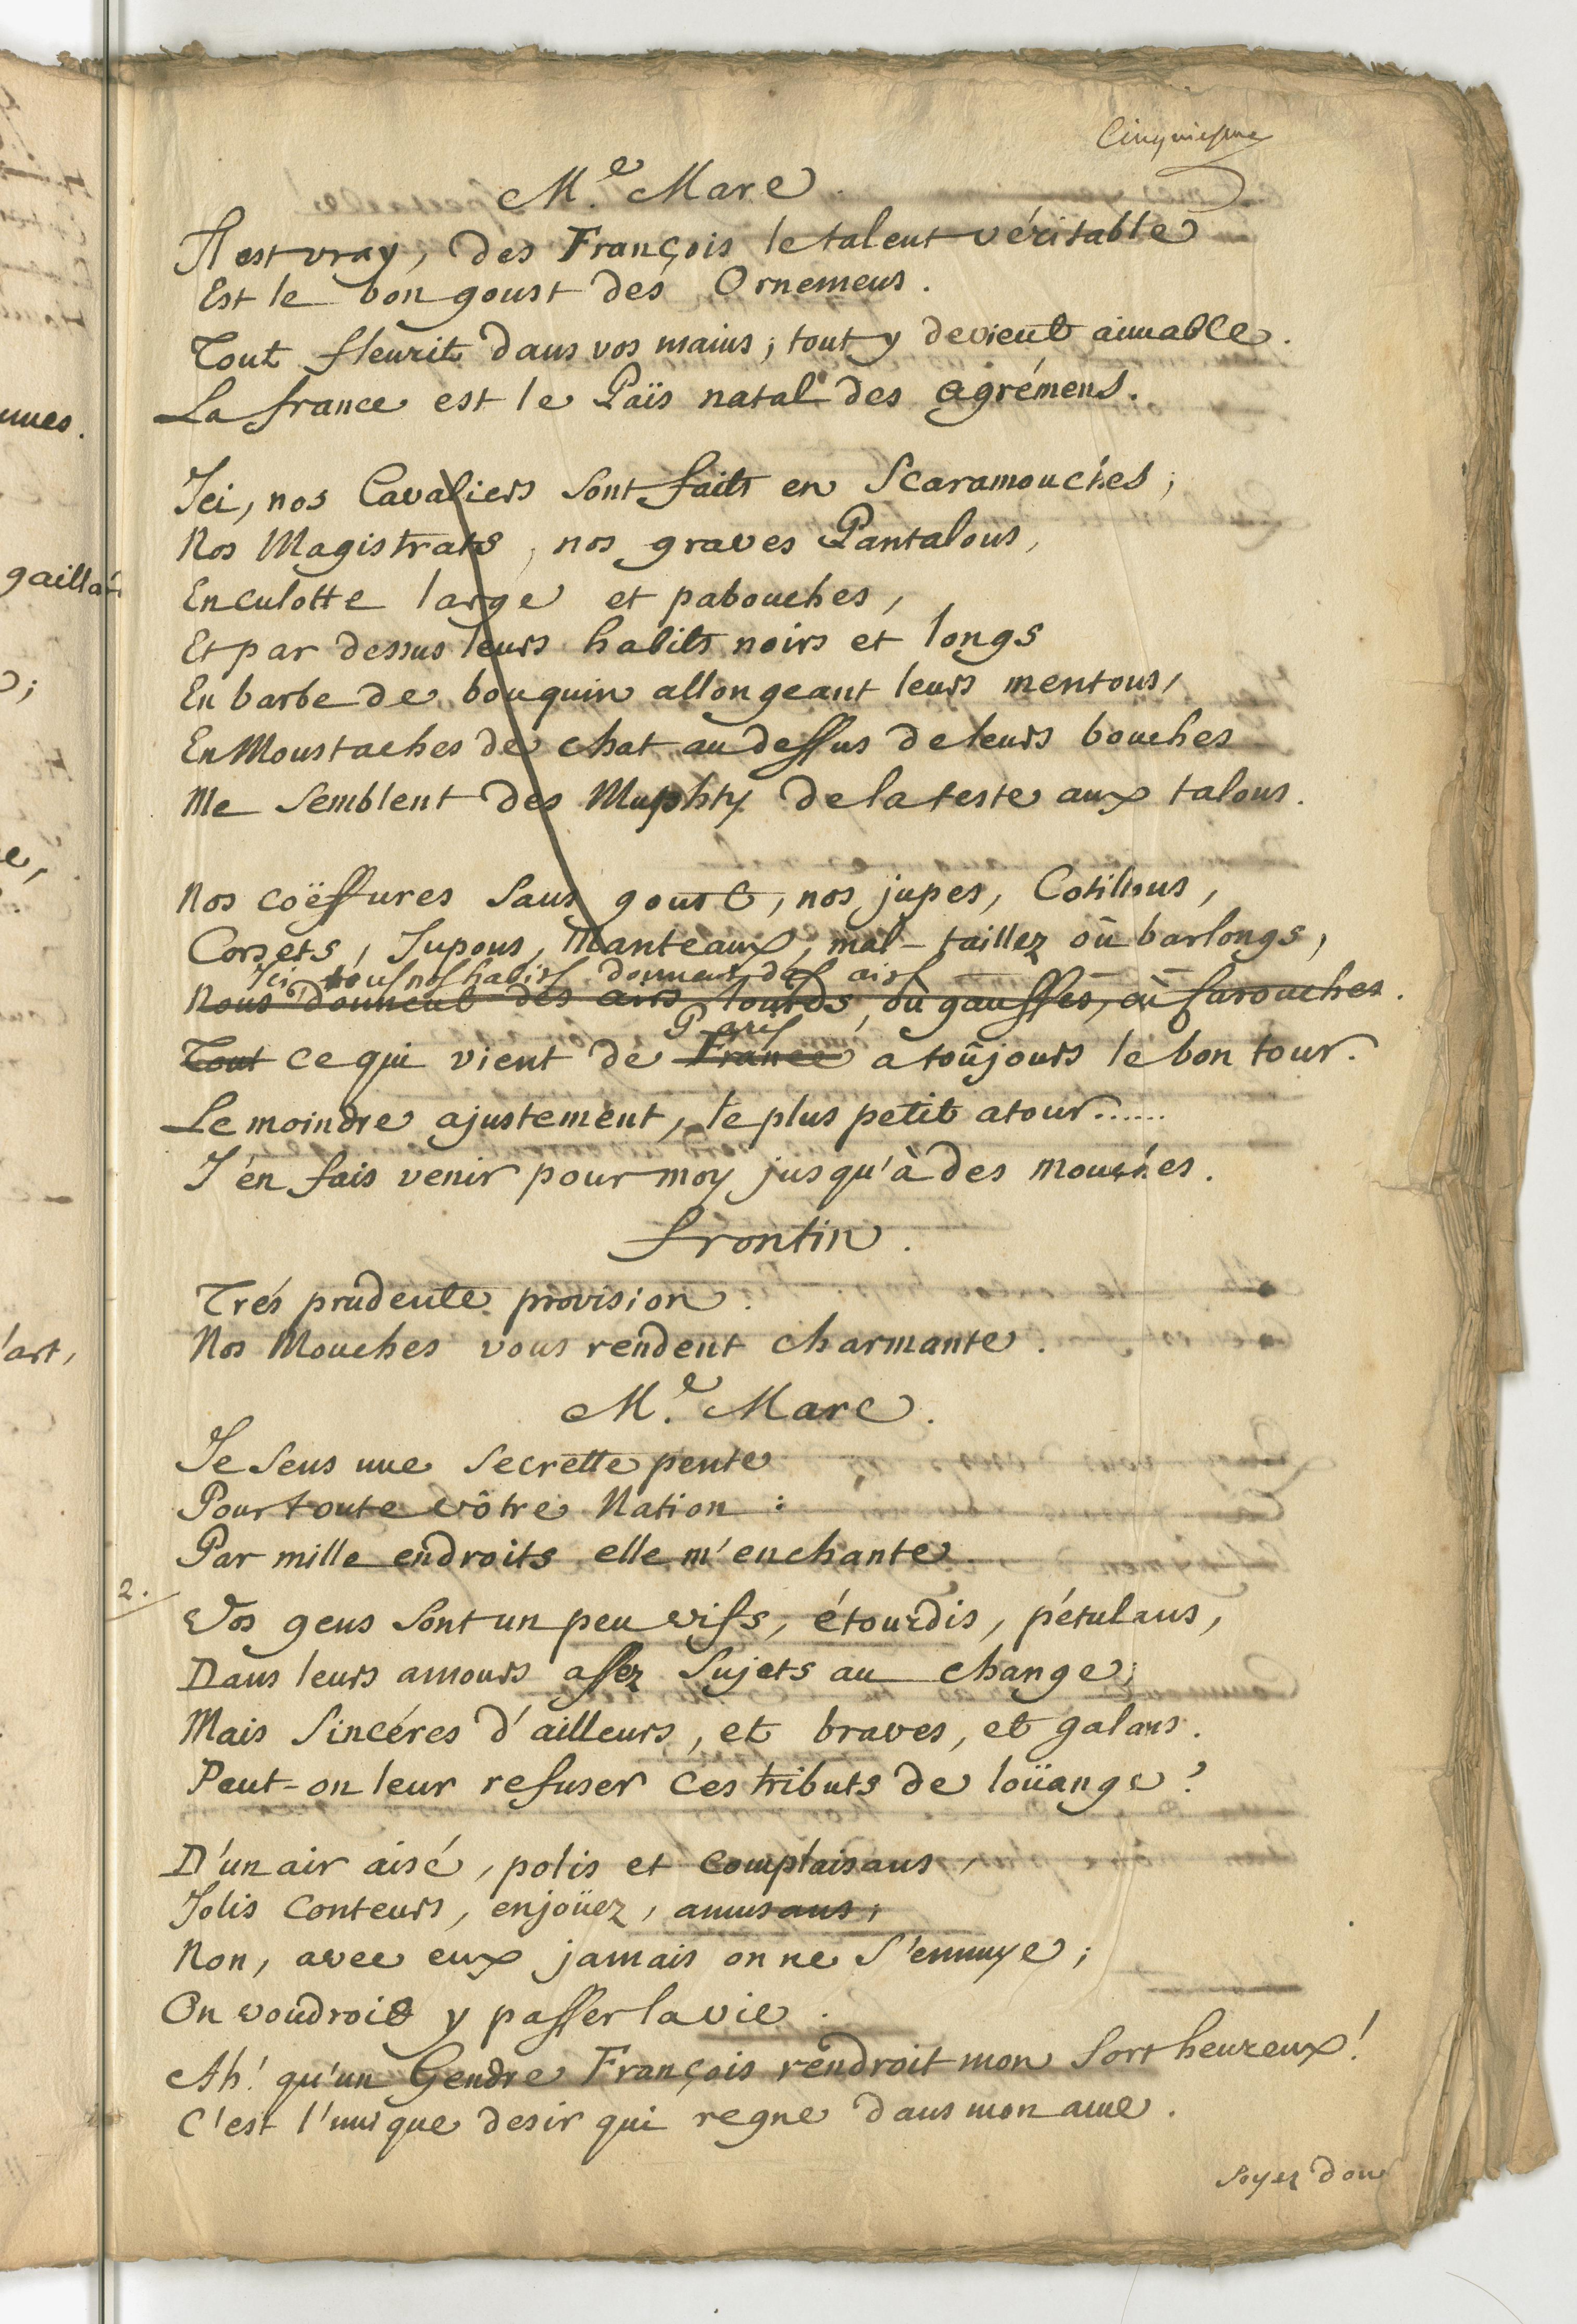 Cinquiesme
M.e Marc.
Il est vray, des François le talent véritable
Est le bon goust des Ornemens.
Tout fleurit dans vos mains; tout y devient aimable.
La france est le Païs natal des agrémens.
Ici, nos Cavaliers sont faits en Scaramouches;
Nos Magistrats, nos graves Pantalons,
En culotte large et pabouches,
Et par dessus leurs habits noirs et longs
En barbe de bouquin allongeant leurs mentons,
En Moustaches de chat au dessus de leurs bouches
Me semblent des Muphty de la teste aux talons.
Nos coëffures sans goust, nos jupes, Cotillons,
Corsets, Jupons, Manteaux, mal-taillez où barlongs,
Ici tous nos habits donnent des airs
Nous donnent des airs lourds, où gausses, où farouches.
Paris
Tout ce qui vient de France a toûjours le bon tour.
Le moindre ajustement, le plus petit atour......
J'en fais venir pour moy jusqu'à des mouches.
frontin.
Trés prudente provision.
Nos Mouches vous rendent charmante.
M.e Marc.
Je sens une secrette pente
Pour toute vôtre Nation:
Par mille endroits elle m'enchante.
2.
Vos gens sont un peu vifs, étourdis, pétulans,
Dans leurs amours assez sujets au change;
Mais sincéres d'ailleurs, et braves, et galans.
Peut-on leur refuser ces tributs de loüange?
D'un air aisé, polis et complaisans,
Jolis conteurs, enjoüez, amusans;
Non, avec eux jamais on ne s'ennuye;
On voudroit y passer la vie.
Ah! qu'un Gendre François rendroit mon sort heureux!
C'est l'unique desir qui regne dans mon ame.
soyez donc
unes.
gaillar
e,
l'art,